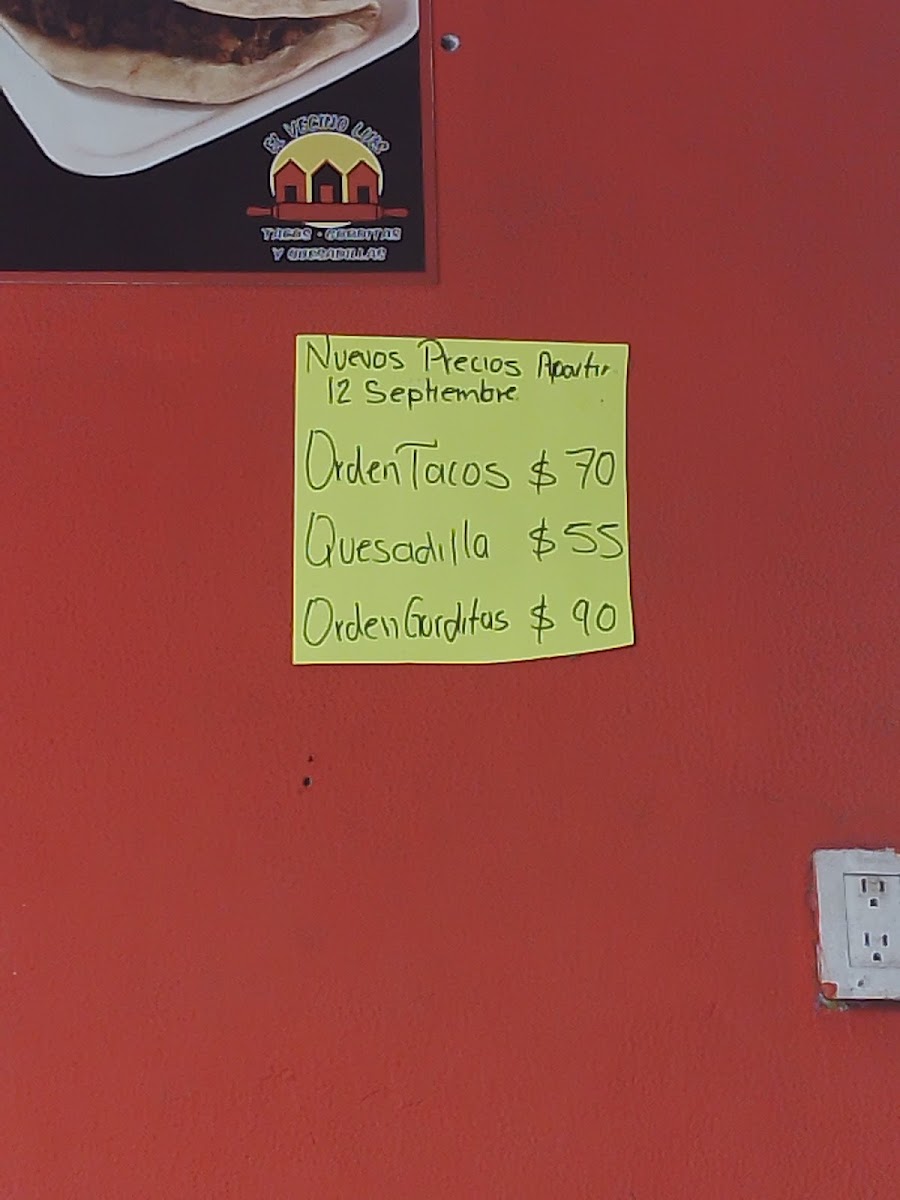 EL VECINO LUIS
TACOS • GORDITAS
Y QUESADILLAS
Nuevos Precios Apartir
12 Septiembre
Orden Tacos $ 70
Quesadilla $ 55
Orden Gorditas $ 90